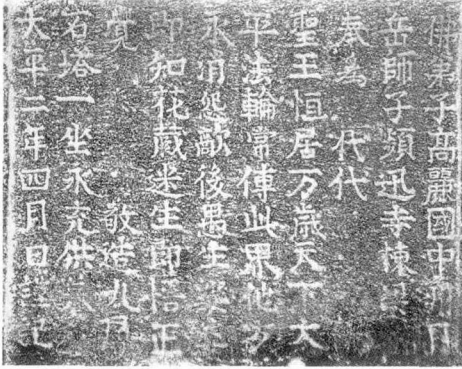 佛弟子高麗國中州月
岳師子頻迅寺棟梁
奉爲 代代
聖王恒居万歲天下大
平法輪常傳此界他方
永消怨敵後愚生婆
即知花藏迷生即悟正
覺 敬造九層
石塔一坐永充供
太平二年四月日謹記